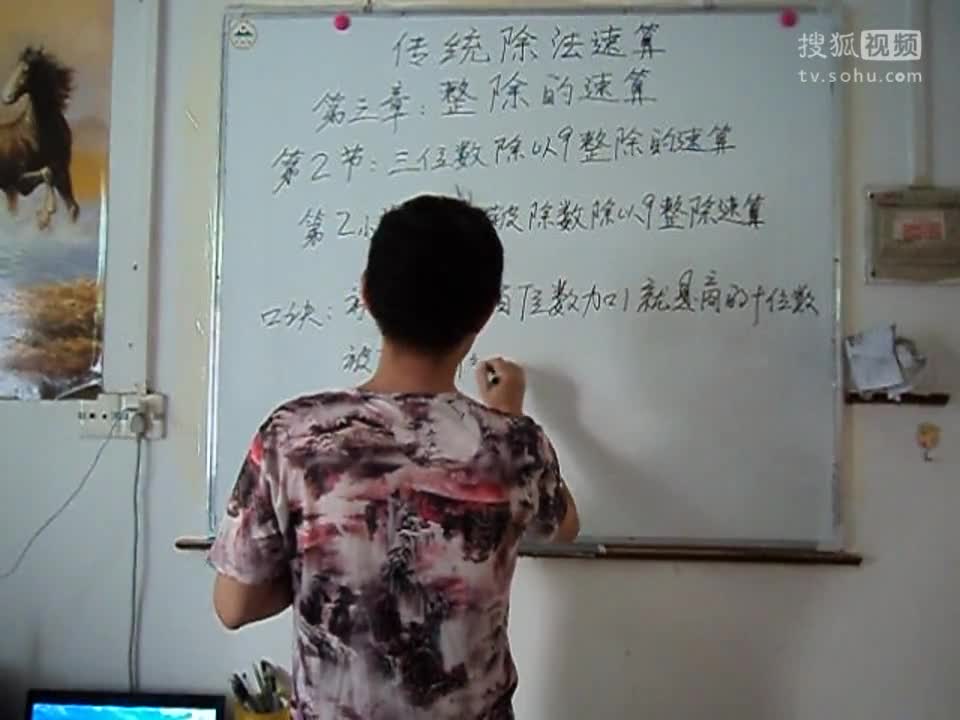 搜狐视频
tv.sohu.com
传统除法速算
第三章:整除的速算
第2节:三位数除以9整除的速算
第2小 被除数除以9整除速算
口诀: 百位数加1就是商的十位数
被